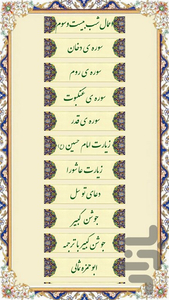 اعمال شب بیست و سوم
سوره ی دخان
سوره ی روم
سوره ی عنکبوت
سوره ی قدر
زیارت امام حسین (ع)
زیارت عاشورا
دعای توسل
جوشن کبیر
جوشن کبیر با ترجمه
ابوحمزه ثمالی
بازار